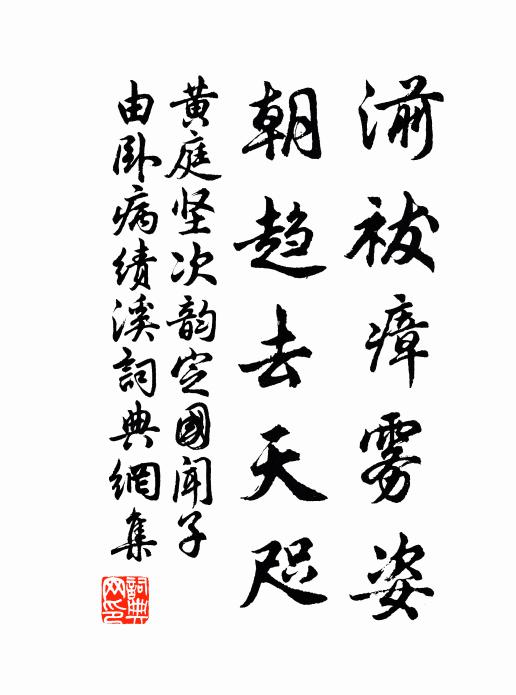 湔祓瘴雾姿
朝趋去天咫
黄庭坚次韵定國闻子
由卧病绩溪詞典網集
詞典网印